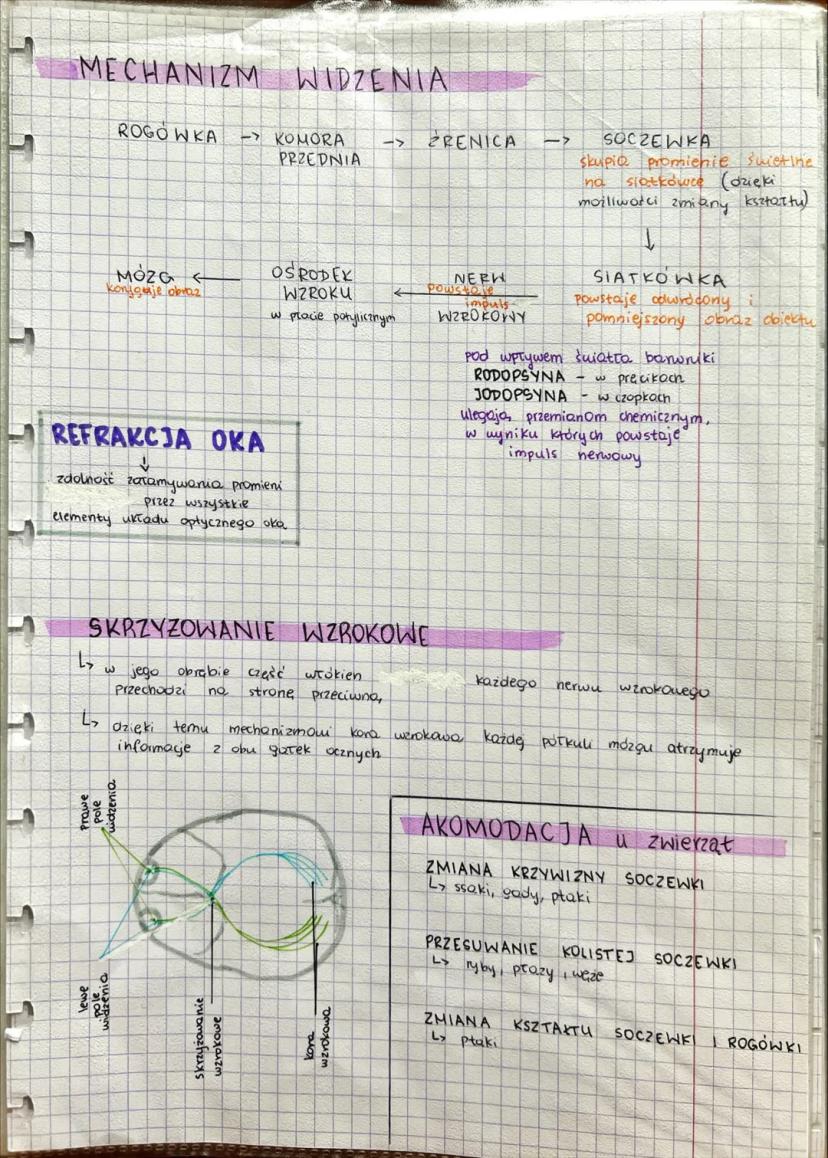 MECHANIZM WIDZENIA
ROGÓWKA -> KOMORA -> ŹRENICA -> SOCZEWKA
PRZEDNIA
skupia promienie świetlne
na siatkówce (dzięki
możliwości zmiany kształtu)
SIATKÓWKA
powstaje odwrócony i
pomniejszony obraz obiektu
NERW
powstaje
impuls
WZROKOWY
OŚRODEK
WZROKU
w płacie potylicznym
MÓZG
koryguje obraz
pod wpływem światła barwniki
RODOPSYNA - w pręcikach
JODOPSYNA - w czopkach
ulegają przemianom chemicznym,
w wyniku których powstaje
impuls nerwowy
REFRAKCJA OKA
zdolność załamywania promieni
przez wszystkie
elementy układu optycznego oka
SKRZYŻOWANIE WZROKOWE
w jego obrębie część włókien każdego nerwu wzrokowego
przechodzi na stronę przeciwną,
dzięki temu mechanizmowi kora wzrokowa każdej półkuli mózgu otrzymuje
informacje z obu gałek ocznych
prawe
pole
widzenia
lewe
pole
widzenia
skrzyżowanie
wzrokowe
kora
wzrokowa
AKOMODACJA u zwierząt
ZMIANA KRZYWIZNY SOCZEWKI
ssaki, gady, ptaki
PRZESUWANIE KOLISTEJ SOCZEWKI
ryby, płazy, węże
ZMIANA KSZTAŁTU SOCZEWKI I ROGÓWKI
ptaki